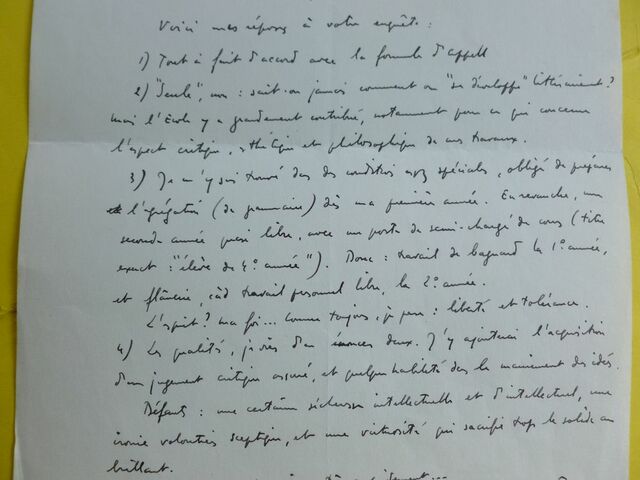 Voici mes réponses à votre enquête :
1) Tout à fait d'accord avec la formule d'appell
2) "Seule", non : sait-on jamais comment on "se développe" littérairement ?
mais l'École y a grandement contribué, notamment pour ce qui concerne
l'aspect critique, esthétique et philosophique de mes travaux.
3) Je m'y suis trouvé dans des conditions assez spéciales, obligé de préparer
l'agrégation (de grammaire) dès ma première année. En revanche, une
seconde année quasi libre, avec un poste de semi-chargé de cours (titre
exact : "élève de 4° année"). Donc : travail de bagnard la 1° année,
et flânerie, càd travail personnel libre, la 2° année.
L'esprit ? ma foi... comme toujours, je pense : liberté et tolérance.
4) Les qualités, je viens d'en énoncer deux. J'y ajouterai l'acquisition
d'un jugement critique assuré, et quelque habileté dans le maniement des idées.
Défauts : une certaine sécheresse intellectuelle et d'intellectuel, une
ironie volontiers sceptique, et une virtuosité qui sacrifie trop le solide au
brillant.